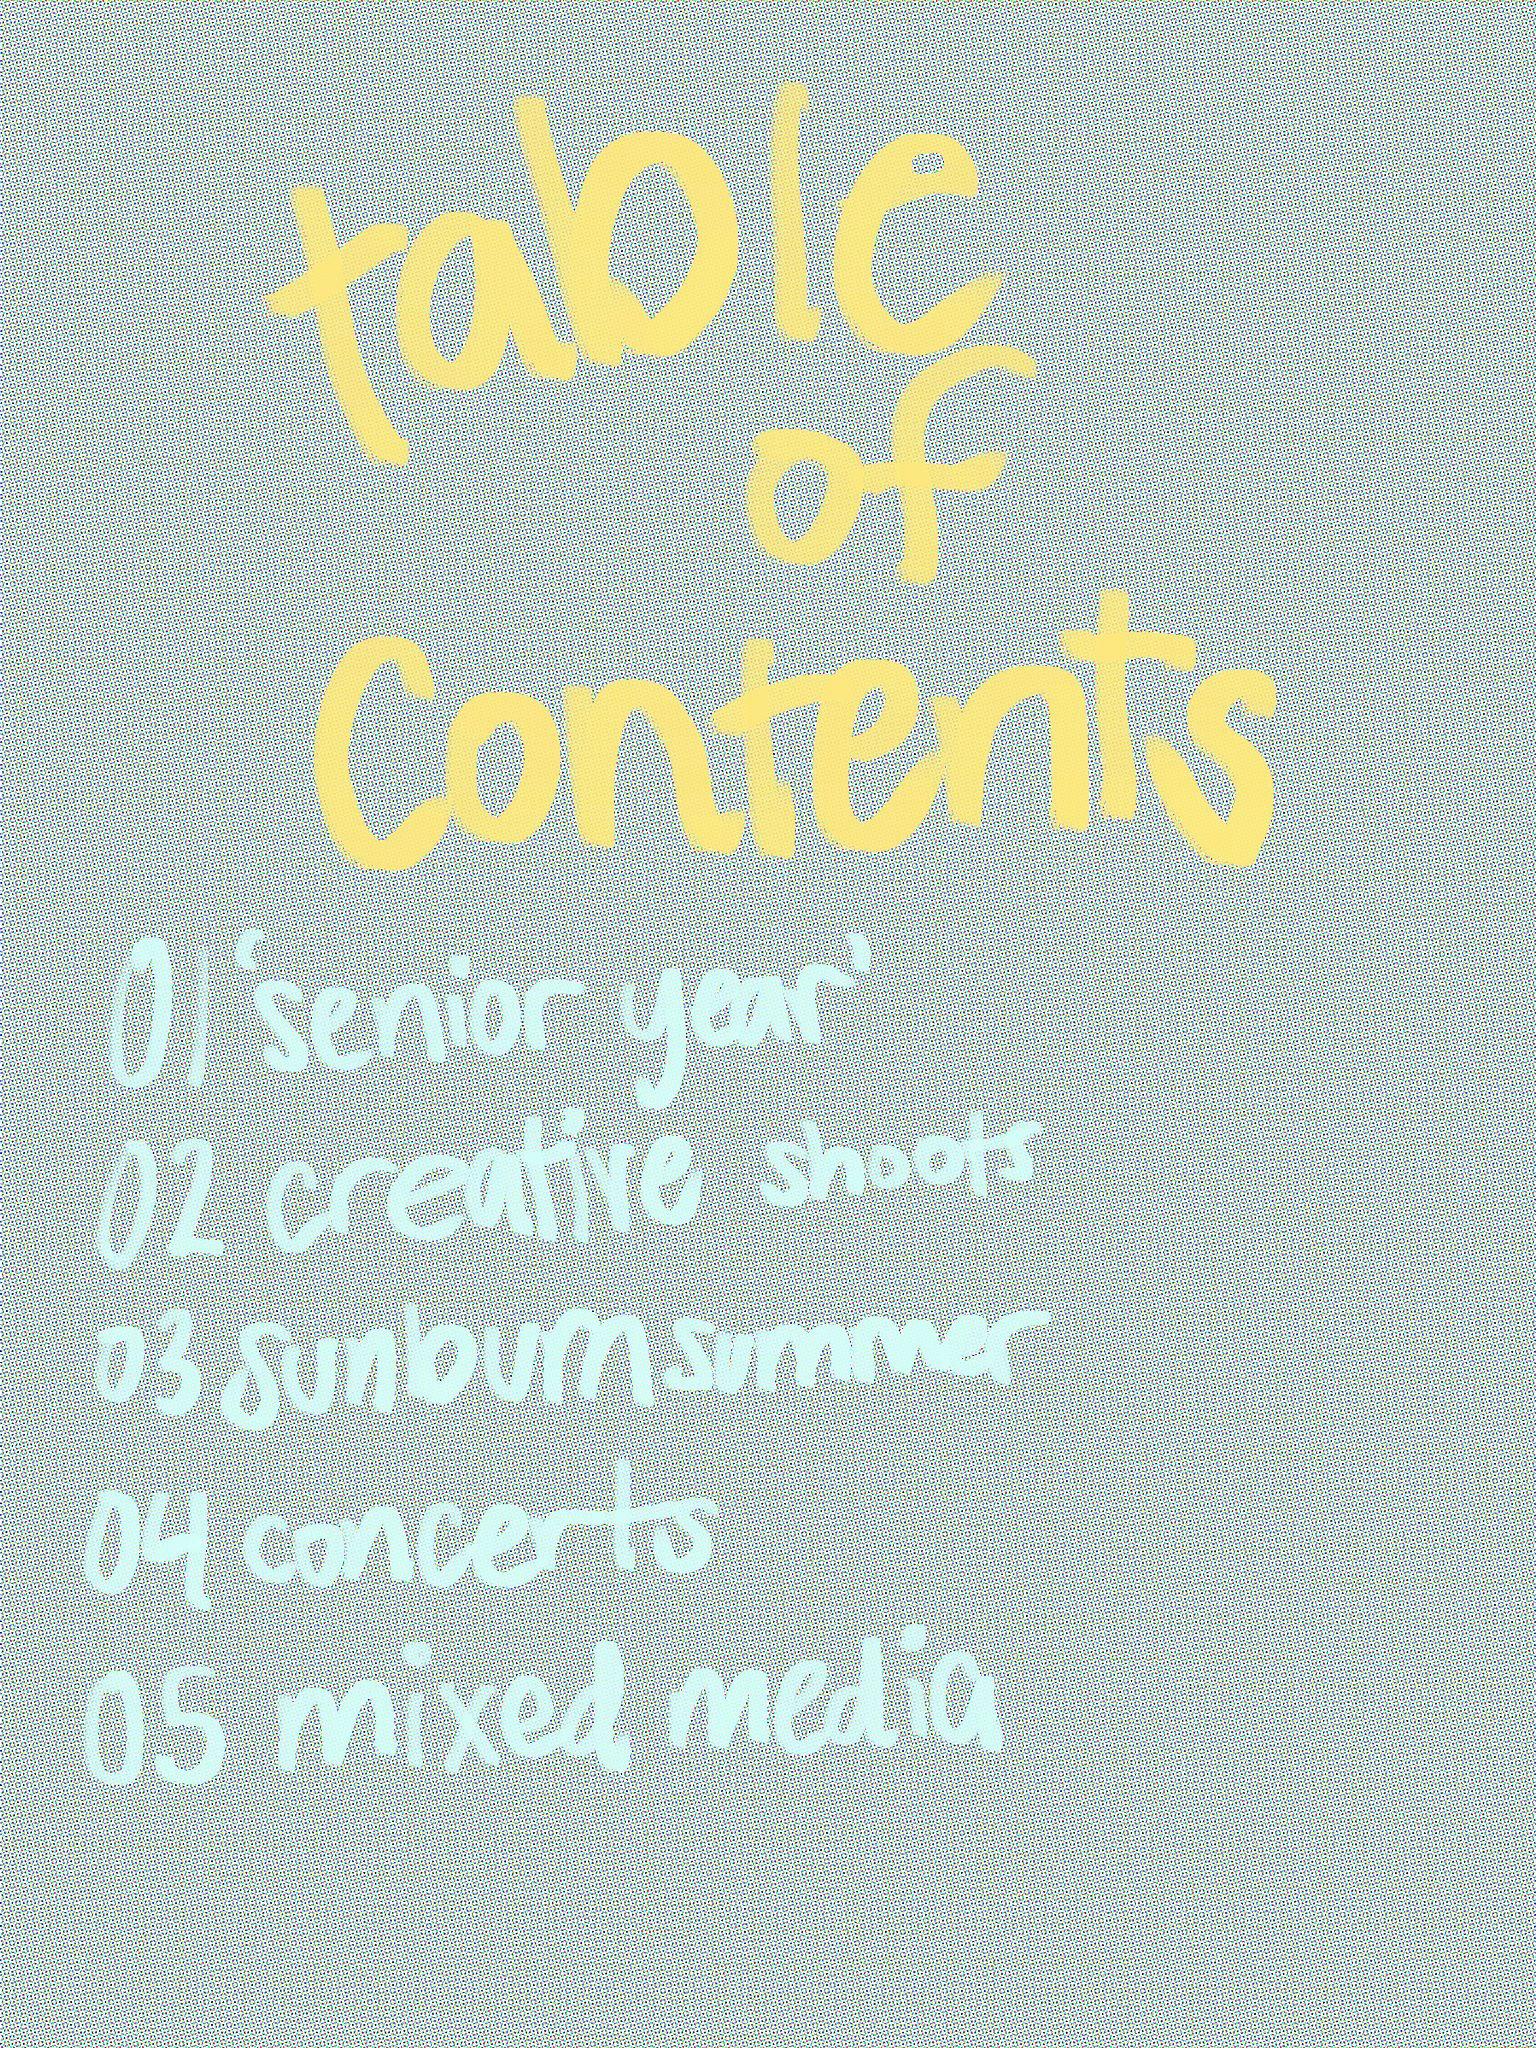 table
of
Contents
01 'senior year'
02 creative shoots
03 sunburn summer
04 concerts
05 mixed media